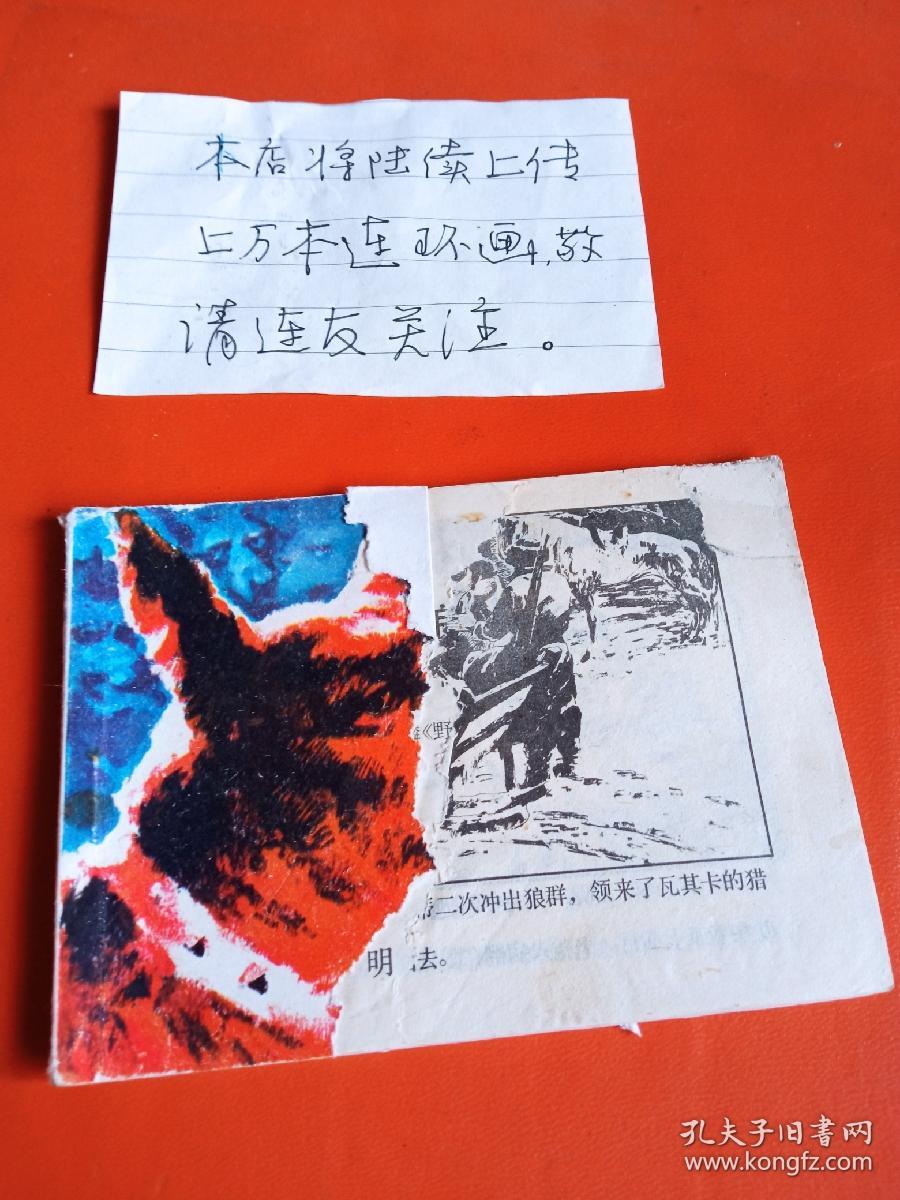 本店将陆续上传
上万本连环画,敬
请连友关注。
《野
二次冲出狼群，领来了瓦其卡的猎
明 法。
孔夫子旧书网
www.kongfz.com